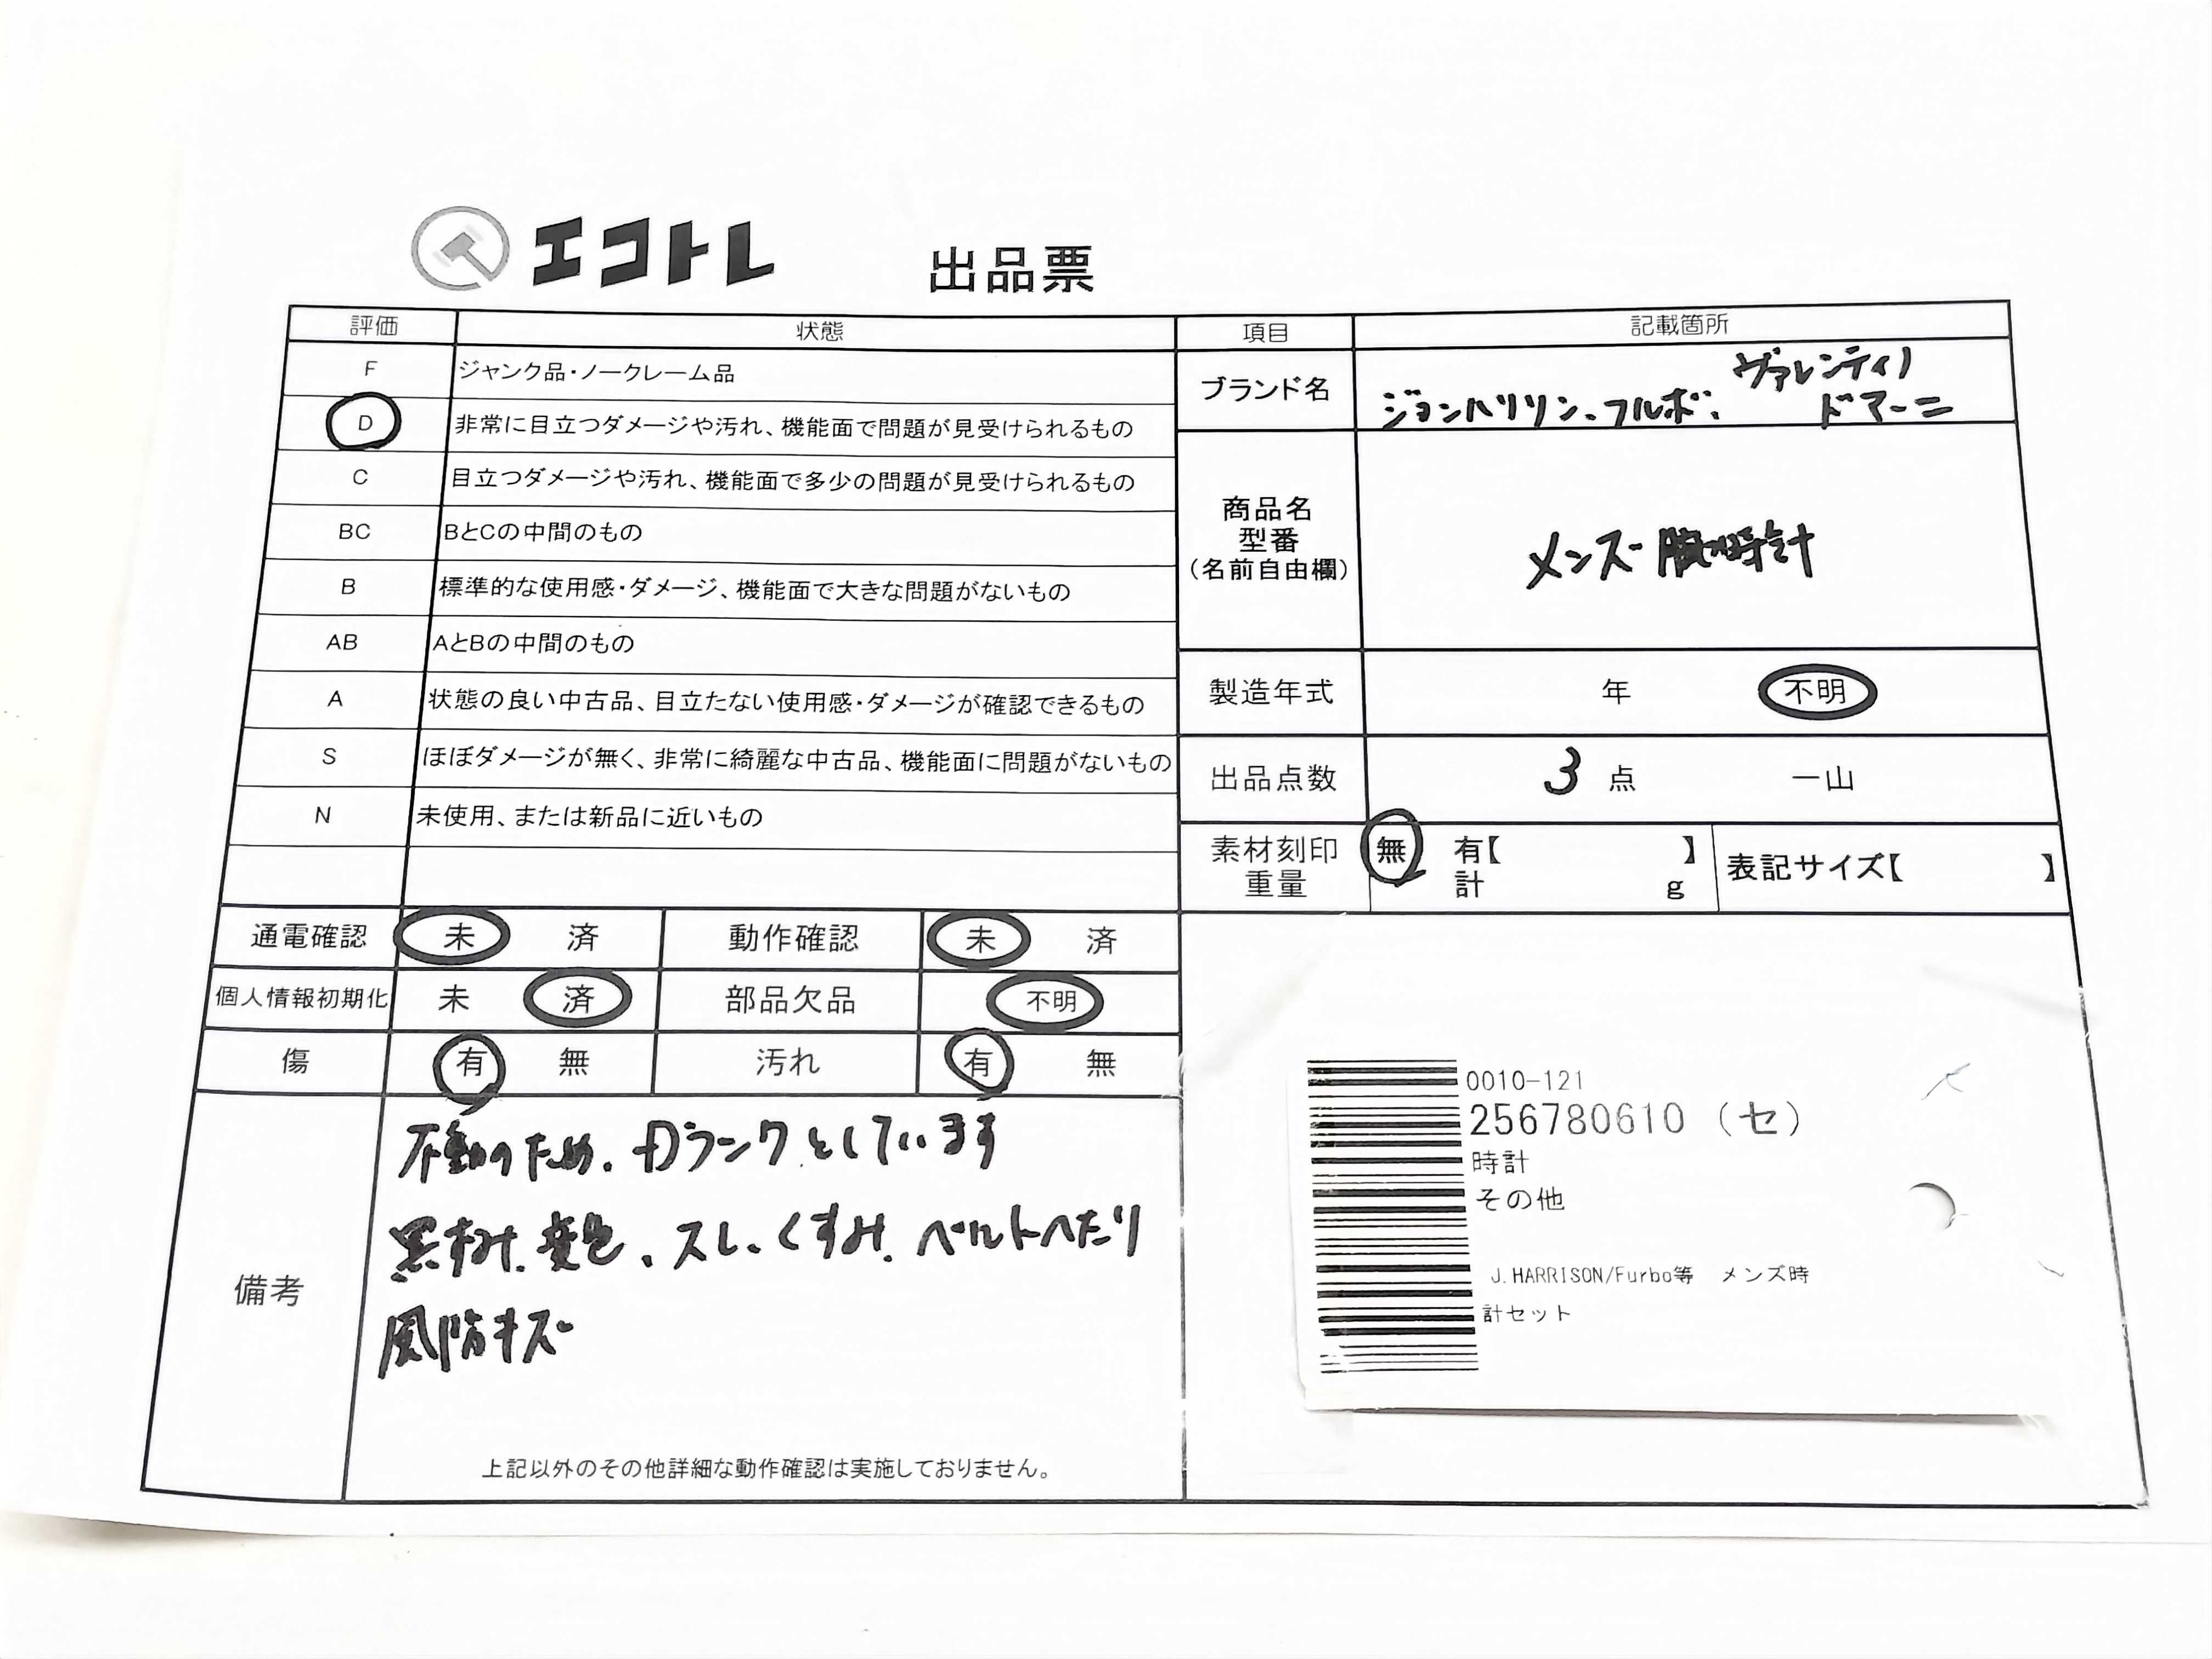 エコトレ 出品票
評価 状態
F ジャンク品・ノークレーム品
D 非常に目立つダメージや汚れ、機能面で問題が見受けられるもの
C 目立つダメージや汚れ、機能面で多少の問題が見受けられるもの
BC BとCの中間のもの
B 標準的な使用感・ダメージ、機能面で大きな問題がないもの
AB AとBの中間のもの
A 状態の良い中古品、目立たない使用感・ダメージが確認できるもの
S ほぼダメージが無く、非常に綺麗な中古品、機能面に問題がないもの
N 未使用、または新品に近いもの
通電確認 未 済 動作確認 未 済
個人情報初期化 未 済 部品欠品 不明
傷 有 無 汚れ 有 無
備考
不動のため、Dランクとしています
黒ずみ、変色、スレ、くすみ、ベルトへたり
風防キズ
上記以外のその他詳細な動作確認は実施しておりません。
項目 記載箇所
ブランド名
ジョンハリソン、フルボ、ヴァレンティノ
ドマーニ
商品名
型番
(名前自由欄)
メンズ腕時計
製造年式 年 不明
出品点数 3 点 一山
素材刻印 無 有【 】 表記サイズ【 】
重量 計 g
0010-121
256780610 (セ)
時計
その他
J.HARRISON/Furbo等 メンズ時
計セット